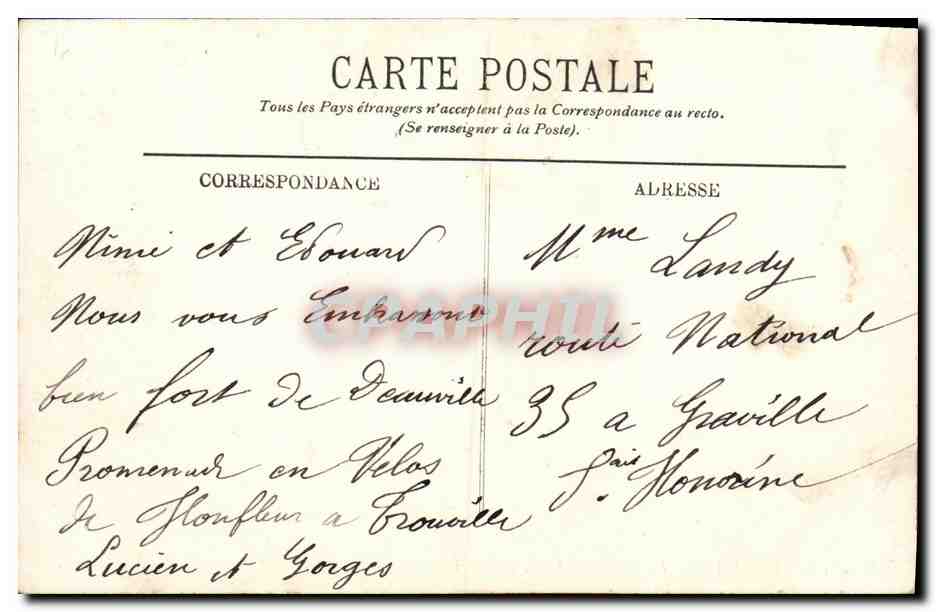 CARTE POSTALE
Tous les Pays étrangers n'acceptent pas la Correspondance au recto.
(Se renseigner à la Poste).
CORRESPONDANCE
Mimi et Edouard
Nous vous Embrasons
bien fort de Deauville
Promenade en Vélos
de Honfleur a Trouville
Lucien et Gorges
ADRESSE
Mme Landy
route National
35 a Graville
Honorine
CPAPHIL